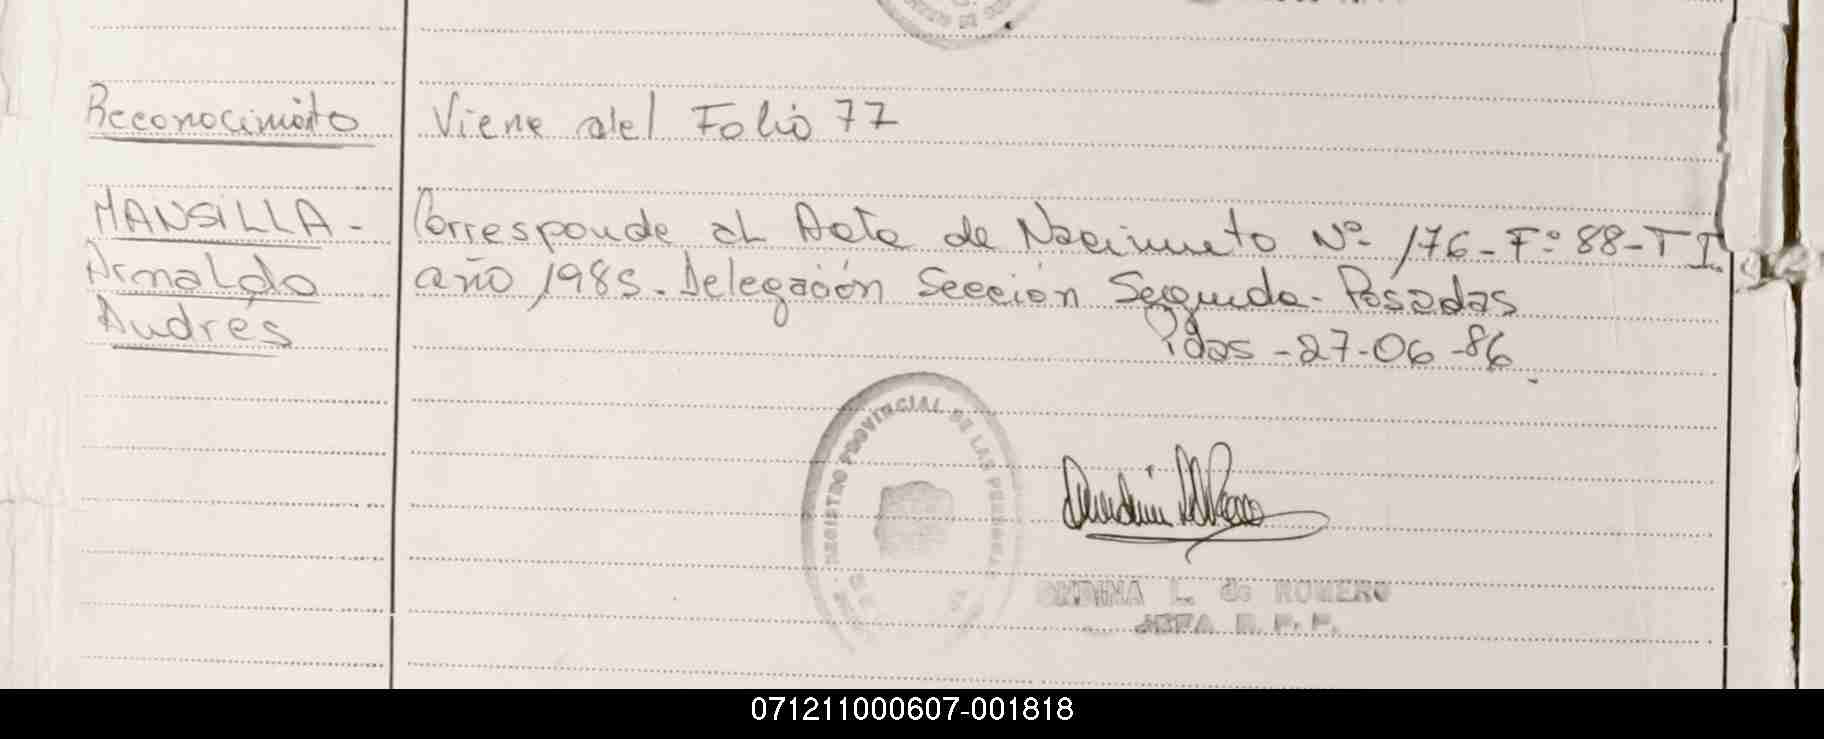 Reconocimiêto
Viene del Folio 77
MANSILLA -
Arnaldo
Andrés
Corresponde al Acta de Nacimieto Nº 176 - Fº 88 - T I.
año 1985. Delegación Sección Segunda - Posadas
Pdas - 27-06-86.
REGISTRO PROVINCIAL DE LAS PERSONAS
ONDINA L. de ROMERO
JEFA R. P. P.
071211000607-001818